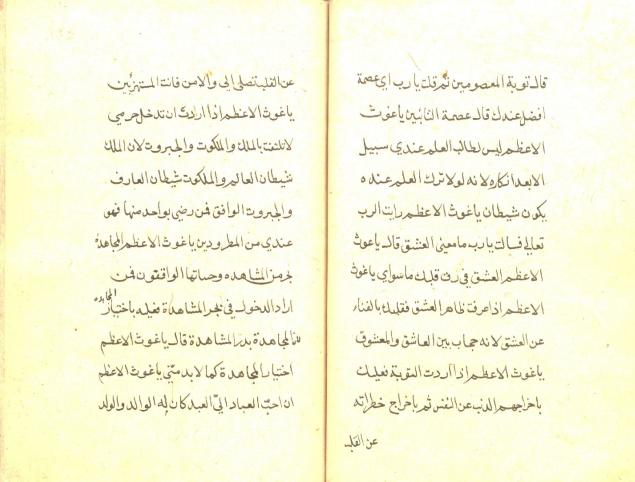 قال توبة المعصومين ثم قلت يا رب اي عصمة
افضل عندك قال عصمة التائبين يا غوث
الاعظم ليس لطالب العلم عندي سبيل
الا بعد انكاره لانه لو لا ترك العلم عنده
يكون شيطان يا غوث الاعظم رايت الرب
تعالى فسالت يا رب ما معنى العشق قال يا غوث
الاعظم العشق في رق قلبك ما سواي يا غوث
الاعظم اذا عرفت ظاهر العشق فقليك بالفناء
عن العشق لانه حجاب بين العاشق والمعشوق
يا غوث الاعظم اذا اردت التوبة فعليك
باخراج هم الذنب عن النفس ثم باخراج خطراته
عن القلب
عن القلب تصلى الى والا من فانت المستهزئين
يا غوث الاعظم اذا اردت ان تدخل حرمي
لا تلتفت بالملك والملكوت والجبروت لان الملك
شيطان العالم والملكوت شيطان العارف
والجبروت الواقف فمن رضى بواحد منها فهو
عندي من المطرودين يا غوث الاعظم المجاهدة
بحر من المشاهده وحسابها الواقفون فمن
اراد الدخول في بحر المشاهدة فعليه باختيار المجاهده
لان المجاهدة بذر المشاهدة قال يا غوث الاعظم
اختيار المجاهدة كما لا بد مني يا غوث الاعظم
ان احب العباد الي العبد كان له الوالد والولد